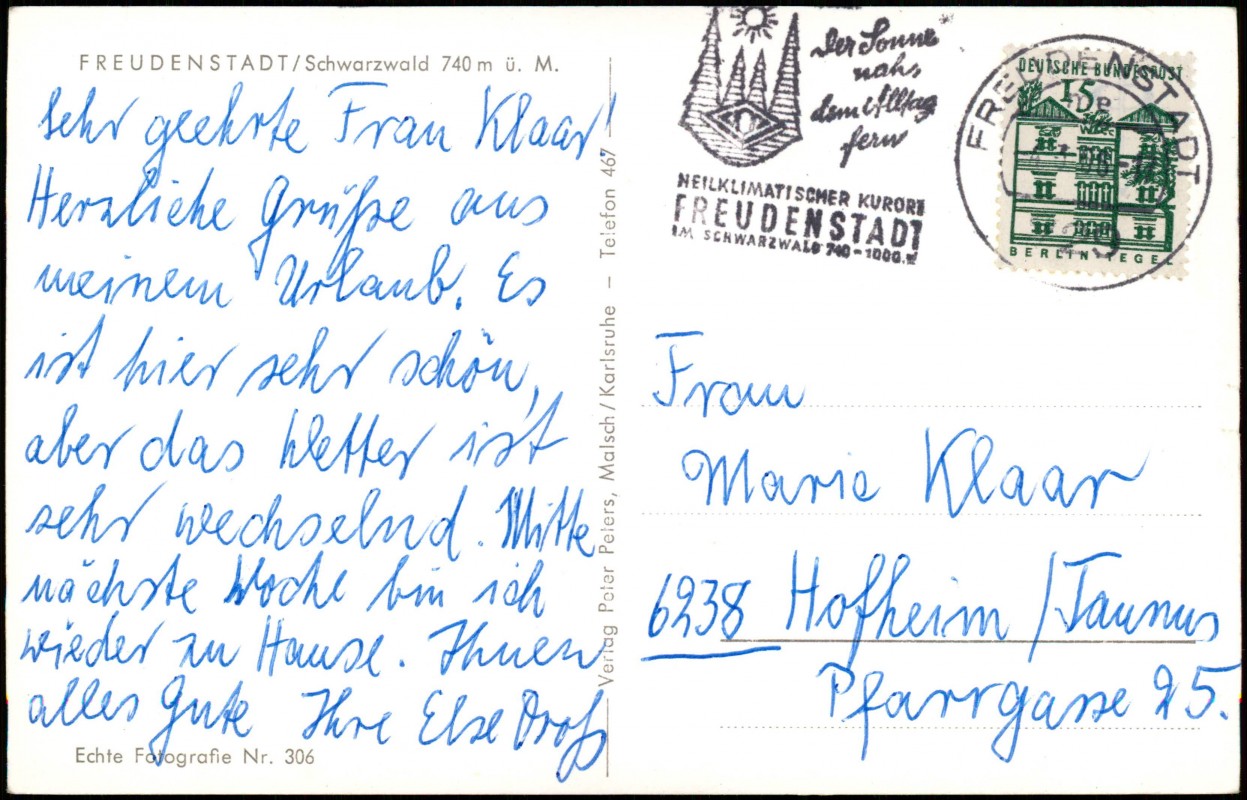 FREUDENSTADT/Schwarzwald 740 m ü. M.
Sehr geehrte Frau Klaar!
Herzliche Grüße aus
meinem Urlaub. Es
ist hier sehr schön,
aber das Wetter ist
sehr wechselnd. Mitte
nächste Woche bin ich
wieder zu Hause. Ihnen
alles Gute Ihre Else Droß
Echte Fotografie Nr. 306
Verlag Peter Peters, Malsch/Karlsruhe – Telefon 467
Der Sonne
nah,
dem Alltag
fern
HEILKLIMATISCHER KURORT
FREUDENSTADT
IM SCHWARZWALD 740-1000 m
FREUDENSTADT
DEUTSCHE BUNDESPOST
15
BERLIN TEGEL
Frau
Marie Klaar
6238 Hofheim/Taunus
Pfarrgasse 25.